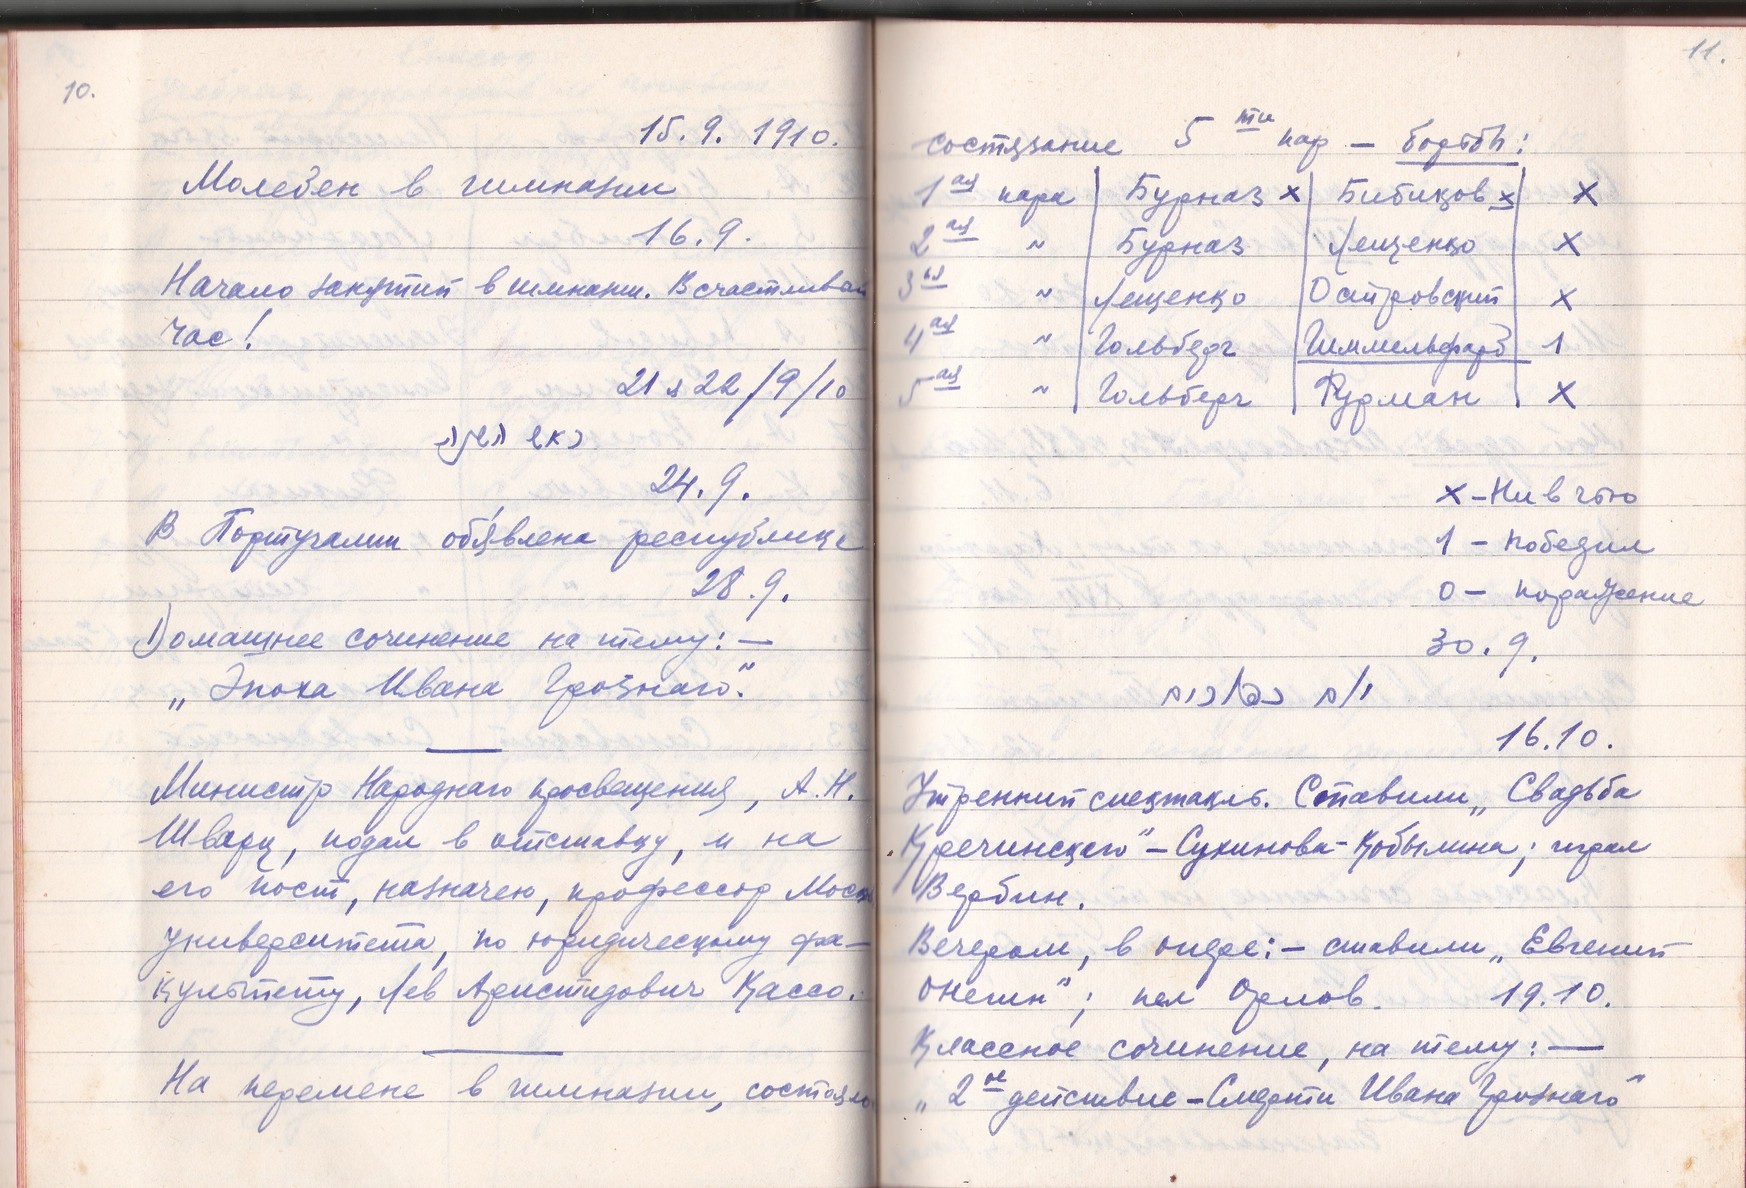 10.
15.9.1910.
Молебен в гимназии
16.9.
Начало занятий в гимназии. В счастливый
час!
21 и 22/9/10
24.9.
В Португалии объявлена республика
28.9.
Домашнее сочинение на тему: —
„Эпоха Ивана Грознаго".
Министр Народнаго просвещения, А.Н.
Шварц, подал в отставку, и на
его пост, назначен, профессор Моск
университета, по юридическому фа-
культету, Лев Аристидович Кассо.
На перемене в гимназии, состоялось
11.
состязание 5ти пар — борьбы:
1ая пара | Бурназ x | Бибиков x | x
2ая " | Бурназ | Лещенко | x
3ья " | Лещенко | Островский | x
4ая " | Гольберг | Гиммельфарб | 1
5ая " | Гольберг | Фурман | x
x – Ничью
1 – победил
0 – поражение
30.9.
16.10.
Утренний спектакль. Ставили „Свадьба
Кречинского" – Сухинова-Кобылина; играл
Вербин.
Вечером, в опере: – ставили „Евгений
Онегин"; пел Орлов. 19.10.
Классное сочинение, на тему: —
„2ое действие – Смерти Ивана Грознаго"